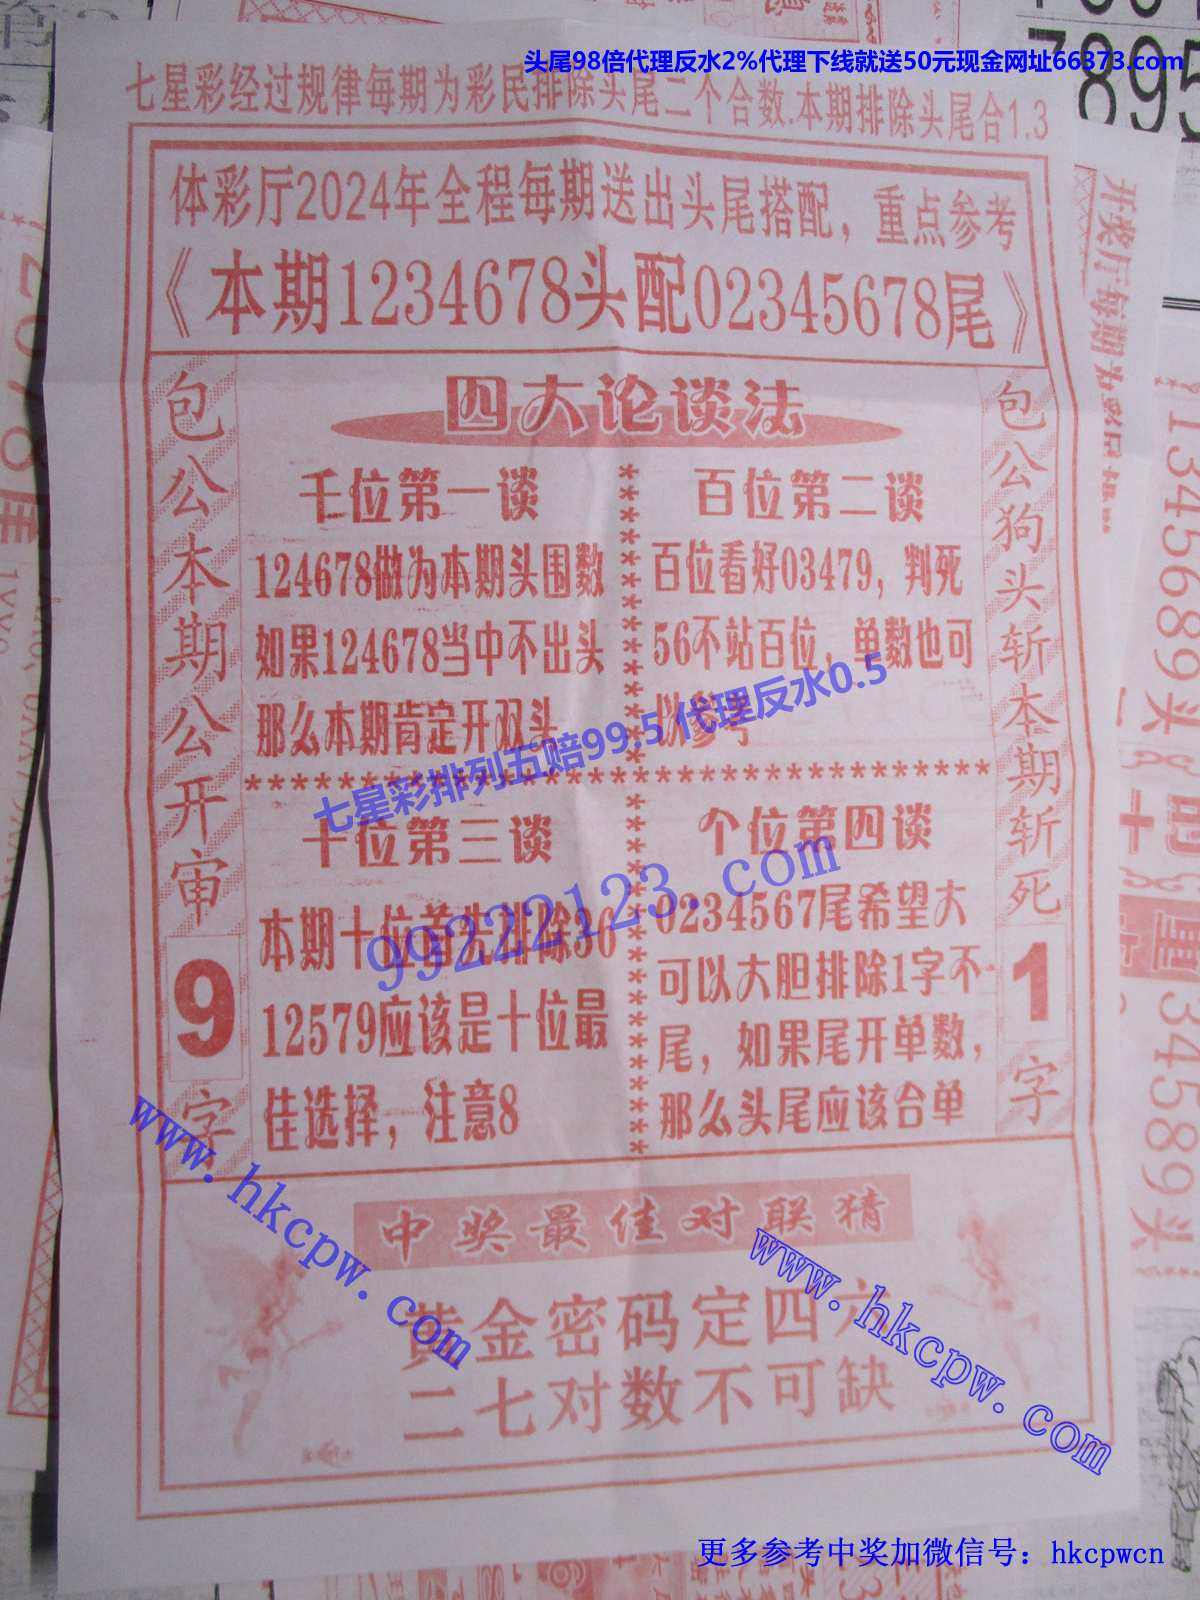 头尾98倍代理反水2%代理下线就送50元现金网址66373.com
七星彩经过规律每期为彩民排除头尾二个合数.本期排除头尾合1.3
体彩厅2024年全程每期送出头尾搭配，重点参考
《本期1234678头配02345678尾》
包公本期公开审
9
字
四大论谈法
千位第一谈
124678做为本期头围数
如果124678当中不出头
那么本期肯定开双头
百位第二谈
百位看好03479，判死
56不站百位，单数也可
以参考
十位第三谈
本期十位首先排除36
12579应该是十位最
佳选择，注意8
个位第四谈
0234567尾希望大
可以大胆排除1字不
尾，如果尾开单数，
那么头尾应该合单
包公狗头斩本期斩死
1
字
七星彩排列五赔99.5 代理反水0.5
99222123.com
中奖最佳对联猜
黄金密码定四六
二七对数不可缺
www.hkcpw.com
www.hkcpw.com
更多参考中奖加微信号：hkcpwcn
开奖厅每期为彩民
345689头
34589头
重
7895